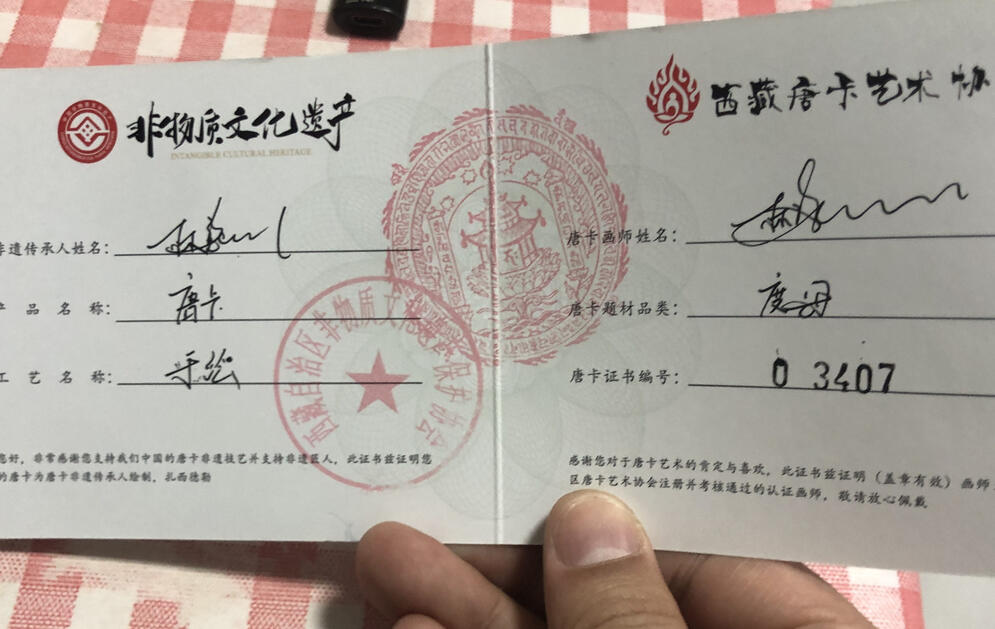 非物质文化遗产
INTANGIBLE CULTURAL HERITAGE
非遗传承人姓名：
产品名称：唐卡
工艺名称：手绘
您好，非常感谢您支持我们中国的唐卡非遗技艺并支持非遗匠人，此证书兹证明您
的唐卡为唐卡非遗传承人绘制，扎西德勒
西藏自治区非物质文化遗产保护协会
西藏唐卡艺术协
唐卡画师姓名：
唐卡题材品类：度母
唐卡证书编号：03407
感谢您对于唐卡艺术的肯定与喜欢，此证书兹证明（盖章有效）画师
区唐卡艺术协会注册并考核通过的认证画师，敬请放心佩戴